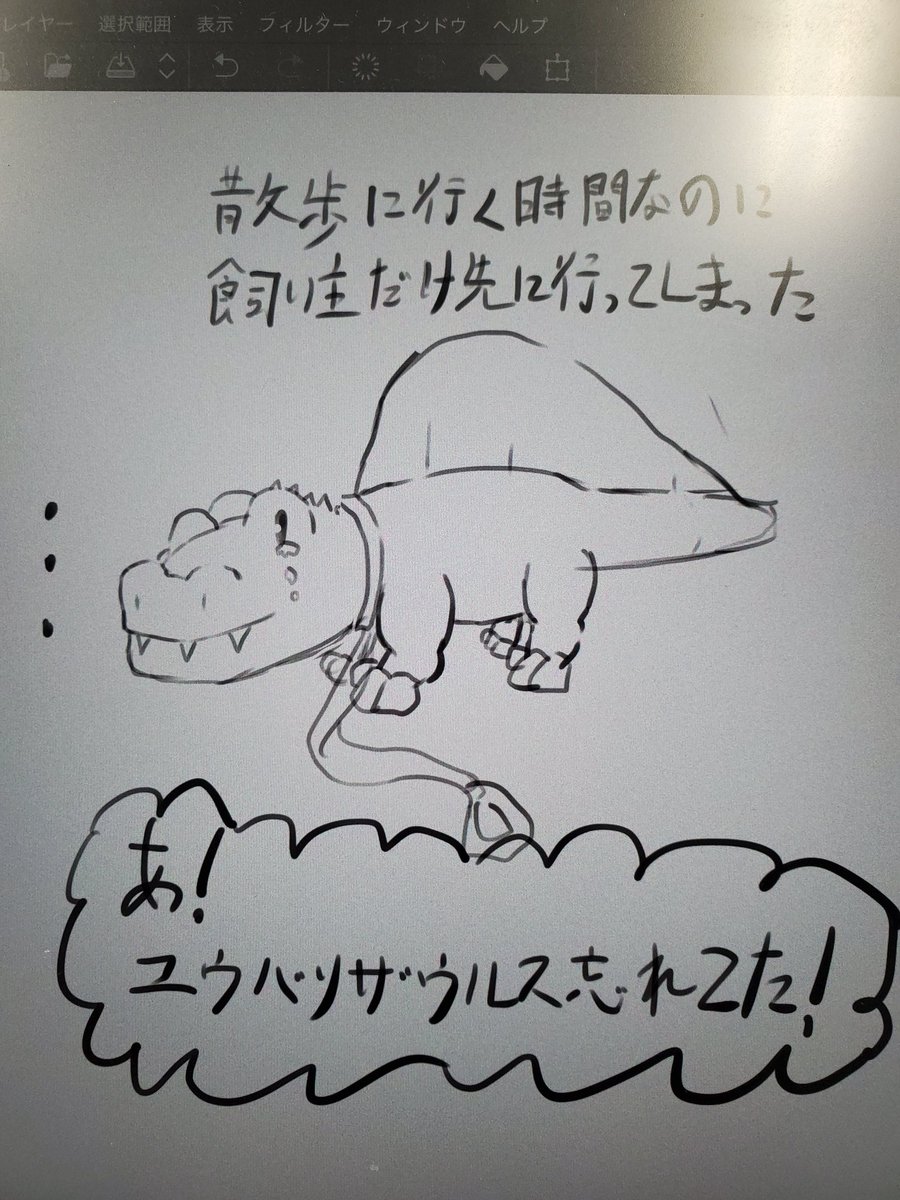 レイヤー 選択範囲 表示 フィルター ウィンドウ ヘルプ
散歩に行く時間なのに
飼い主だけ先に行ってしまった
あ!
ユウバリザウルス忘れてた!